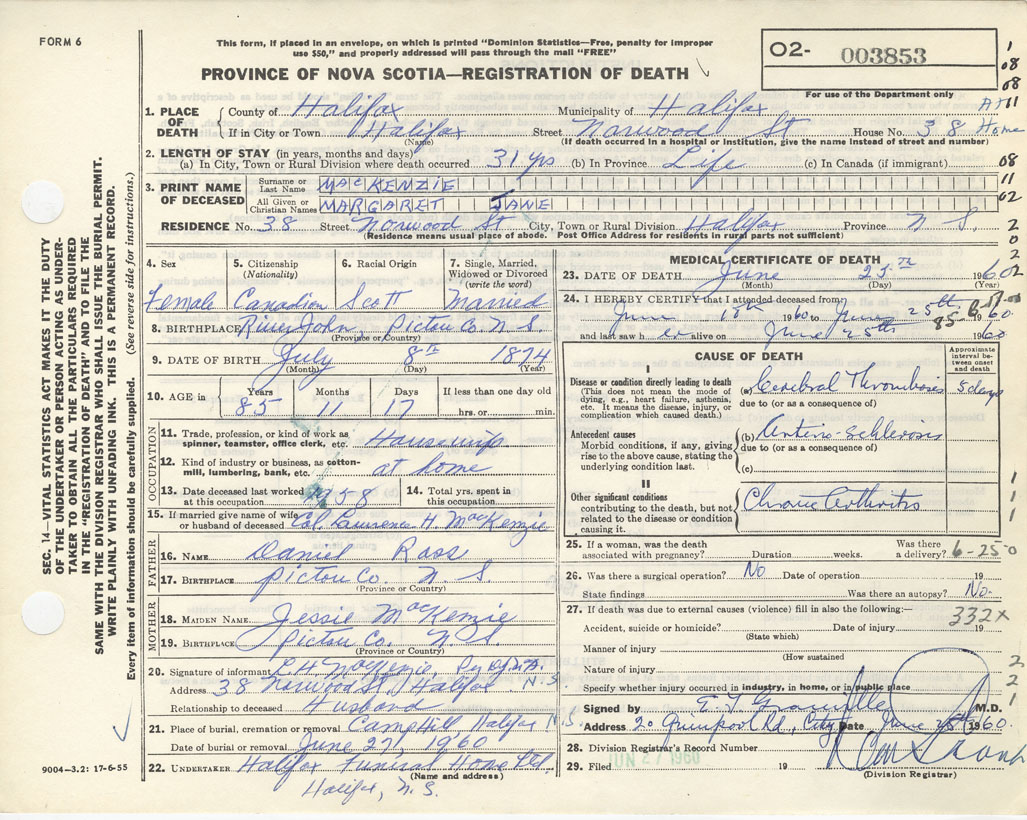 FORM 6
This form, if placed in an envelope, on which is printed "Dominion Statistics—Free, penalty for improper
use $50," and properly addressed will pass through the mail "FREE"
PROVINCE OF NOVA SCOTIA—REGISTRATION OF DEATH
O2- 003853
For use of the Department only
1. PLACE OF DEATH
County of Halifax Municipality of Halifax
If in City or Town Halifax Street Norwood St House No. 38 Home
(Name) (If death occurred in a hospital or institution, give the name instead of street and number)
2. LENGTH OF STAY (in years, months and days)
(a) In City, Town or Rural Division where death occurred 31 yrs (b) In Province Life (c) In Canada (if immigrant)
3. PRINT NAME OF DECEASED
Surname or Last Name MACKENZIE
All Given or Christian Names MARGARET JANE
RESIDENCE No. 38 Street Norwood St City, Town or Rural Division Halifax Province N S.
(Residence means usual place of abode. Post Office Address for residents in rural parts not sufficient)
4. Sex Female
5. Citizenship (Nationality) Canadian
6. Racial Origin Scott
7. Single, Married, Widowed or Divorced (write the word) Married
8. BIRTHPLACE River John, Pictou Co. N. S.
(Province or Country)
9. DATE OF BIRTH July 8th 1874
(Month) (Day) (Year)
10. AGE in Years 85 Months 11 Days 17 If less than one day old
hrs. or min.
OCCUPATION
11. Trade, profession, or kind of work as spinner, teamster, office clerk, etc. Housewife
12. Kind of industry or business, as cotton-mill, lumbering, bank, etc. at home
13. Date deceased last worked at this occupation 1958
14. Total yrs. spent in this occupation
15. If married give name of wife or husband of deceased Col. Laurence H. MacKenzie
FATHER
16. NAME Daniel Ross
17. BIRTHPLACE Pictou Co. N. S.
(Province or Country)
MOTHER
18. MAIDEN NAME Jessie MacKenzie
19. BIRTHPLACE Pictou Co. N. S.
(Province or Country)
20. Signature of informant L H MacKenzie,
Address 38 Norwood St. Halifax N.S
Relationship to deceased Husband
21. Place of burial, cremation or removal Camp Hill Halifax N.S.
Date of burial or removal June 27, 1960
22. UNDERTAKER Halifax Funeral Home Ltd.
(Name and address)
Halifax, N. S.
9004-3.2: 17-6-55
SEC. 14—VITAL STATISTICS ACT MAKES IT THE DUTY
OF THE UNDERTAKER OR PERSON ACTING AS UNDER-
TAKER TO OBTAIN ALL THE PARTICULARS REQUIRED
IN THE "REGISTRATION OF DEATH" AND TO FILE THE
SAME WITH THE DIVISION REGISTRAR WHO SHALL ISSUE THE BURIAL PERMIT.
WRITE PLAINLY WITH UNFADING INK. THIS IS A PERMANENT RECORD.
Every item of information should be carefully supplied. (See reverse side for instructions.)
MEDICAL CERTIFICATE OF DEATH
23. DATE OF DEATH June 25th 1960
(Month) (Day) (Year)
24. I HEREBY CERTIFY that I attended deceased from
June 1960 to June 25th 1960
and last saw her alive on June 25th 1960
CAUSE OF DEATH
Approximate interval between onset and death
I
Disease or condition directly leading to death
(This does not mean the mode of dying, e.g., heart failure, asthenia, etc. It means the disease, injury, or complication which caused death.)
(a) Cerebral Thrombosis 5 days
due to (or as a consequence of)
Antecedent causes
Morbid conditions, if any, giving rise to the above cause, stating the underlying condition last.
(b) Arterio-Schlerosis
due to (or as a consequence of)
(c)
II
Other significant conditions
contributing to the death, but not related to the disease or condition causing it.
Chronic Arthritis
25. If a woman, was the death associated with pregnancy? Duration weeks. Was there a delivery? 6-25-0
26. Was there a surgical operation? No Date of operation 19
State findings Was there an autopsy? No.
27. If death was due to external causes (violence) fill in also the following:— 332X
Accident, suicide or homicide? Date of injury 19
(State which)
Manner of injury
(How sustained
Nature of injury
Specify whether injury occurred in industry, in home, or in public place
Signed by M.D.
Address 20 Quinpool Rd., City Date June 25th 1960.
28. Division Registrar's Record Number
29. Filed JUN 27 1960 19
(Division Registrar)